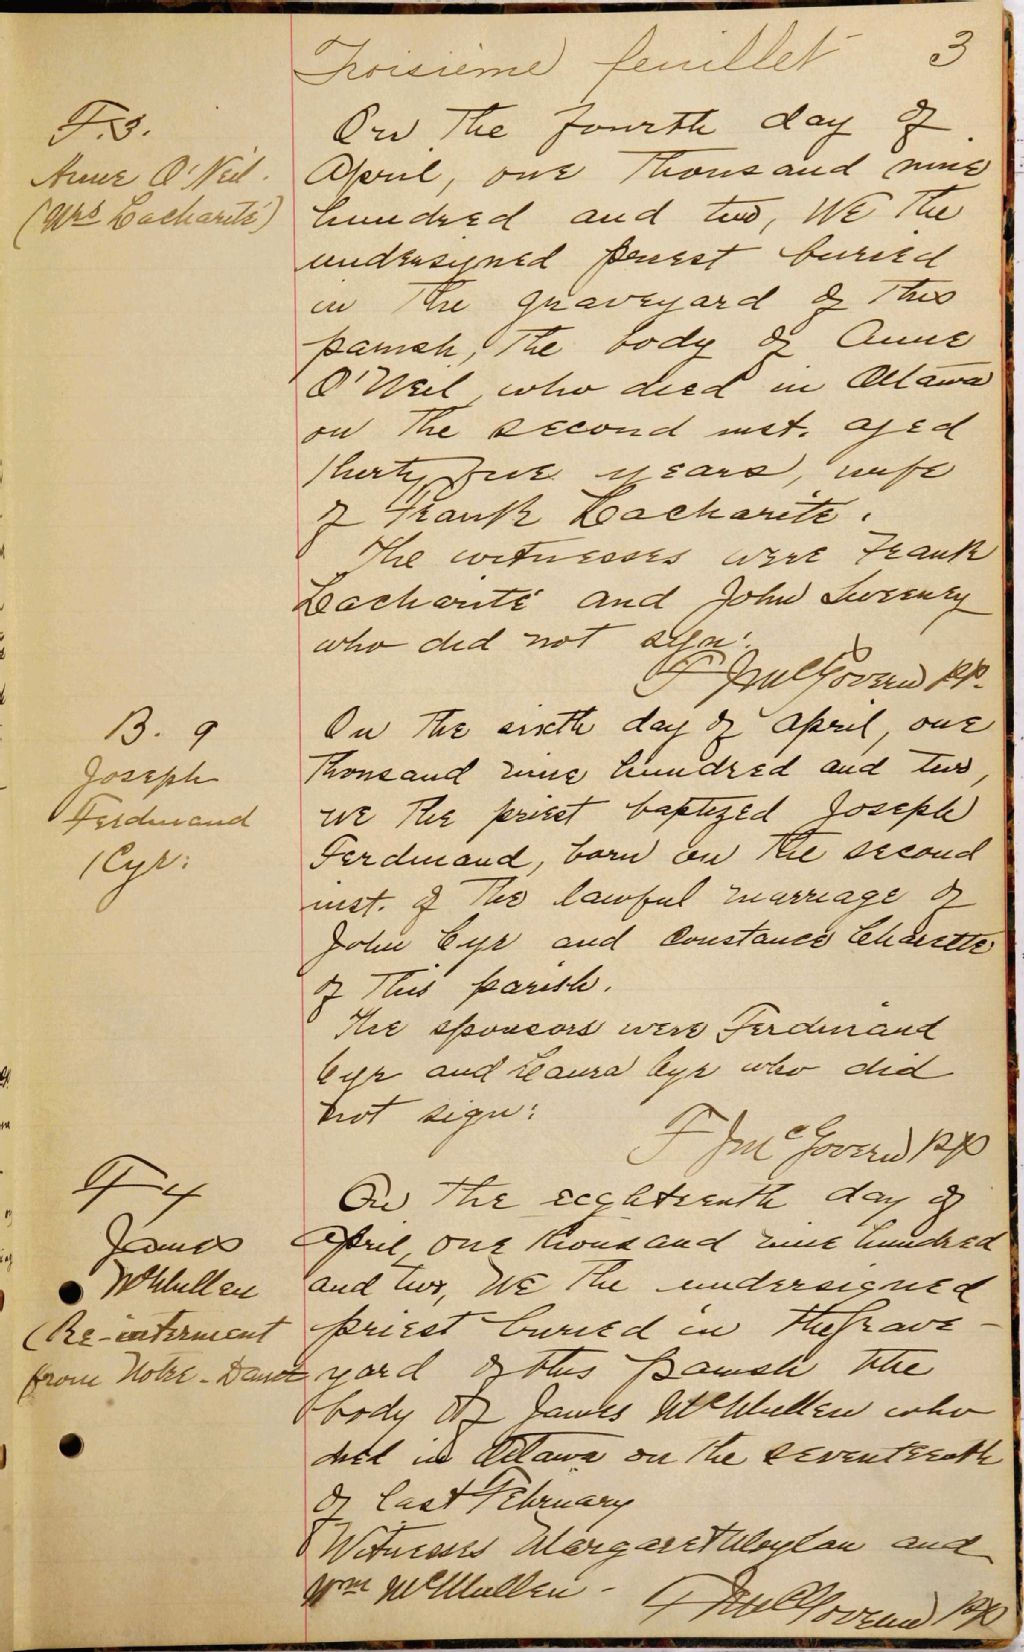 Troisième feuillet 3
F.3.
Anne O'Neil.
(Mrs Lacharité)
On the fourth day of
April, one thousand nine
hundred and two, We the
undersigned priest buried
in the graveyard of this
parish, the body of Anne
O'Neil, who died in Ottawa
on the second inst. aged
thirty five years, wife
of Frank Lacharite.
The witnesses were Frank
Lacharité and John Sweeney
who did not sign:
F JMcGovern PP.
B. 9
Joseph
Ferdinand
Cyr:
On the sixth day of April, one
thousand nine hundred and two,
we the priest baptized Joseph
Ferdinand, born on the second
inst. of the lawful marriage of
John Cyr and Constance Charette
of this parish.
The sponsors were Ferdinand
Cyr and Laura Cyr who did
not sign:
F JMcGovern PP
F 4
James
McMullen
(Re-interment
from Notre-Dame
On the eighteenth day of
April, one thousand nine hundred
and two, We the undersigned
priest buried in the Grave-
yard of this parish the
body of James McMullen who
died in Ottawa on the seventeenth
of last February
Witnesses Margaret Whylan and
Wm McMullen -
F JMcGovern PP